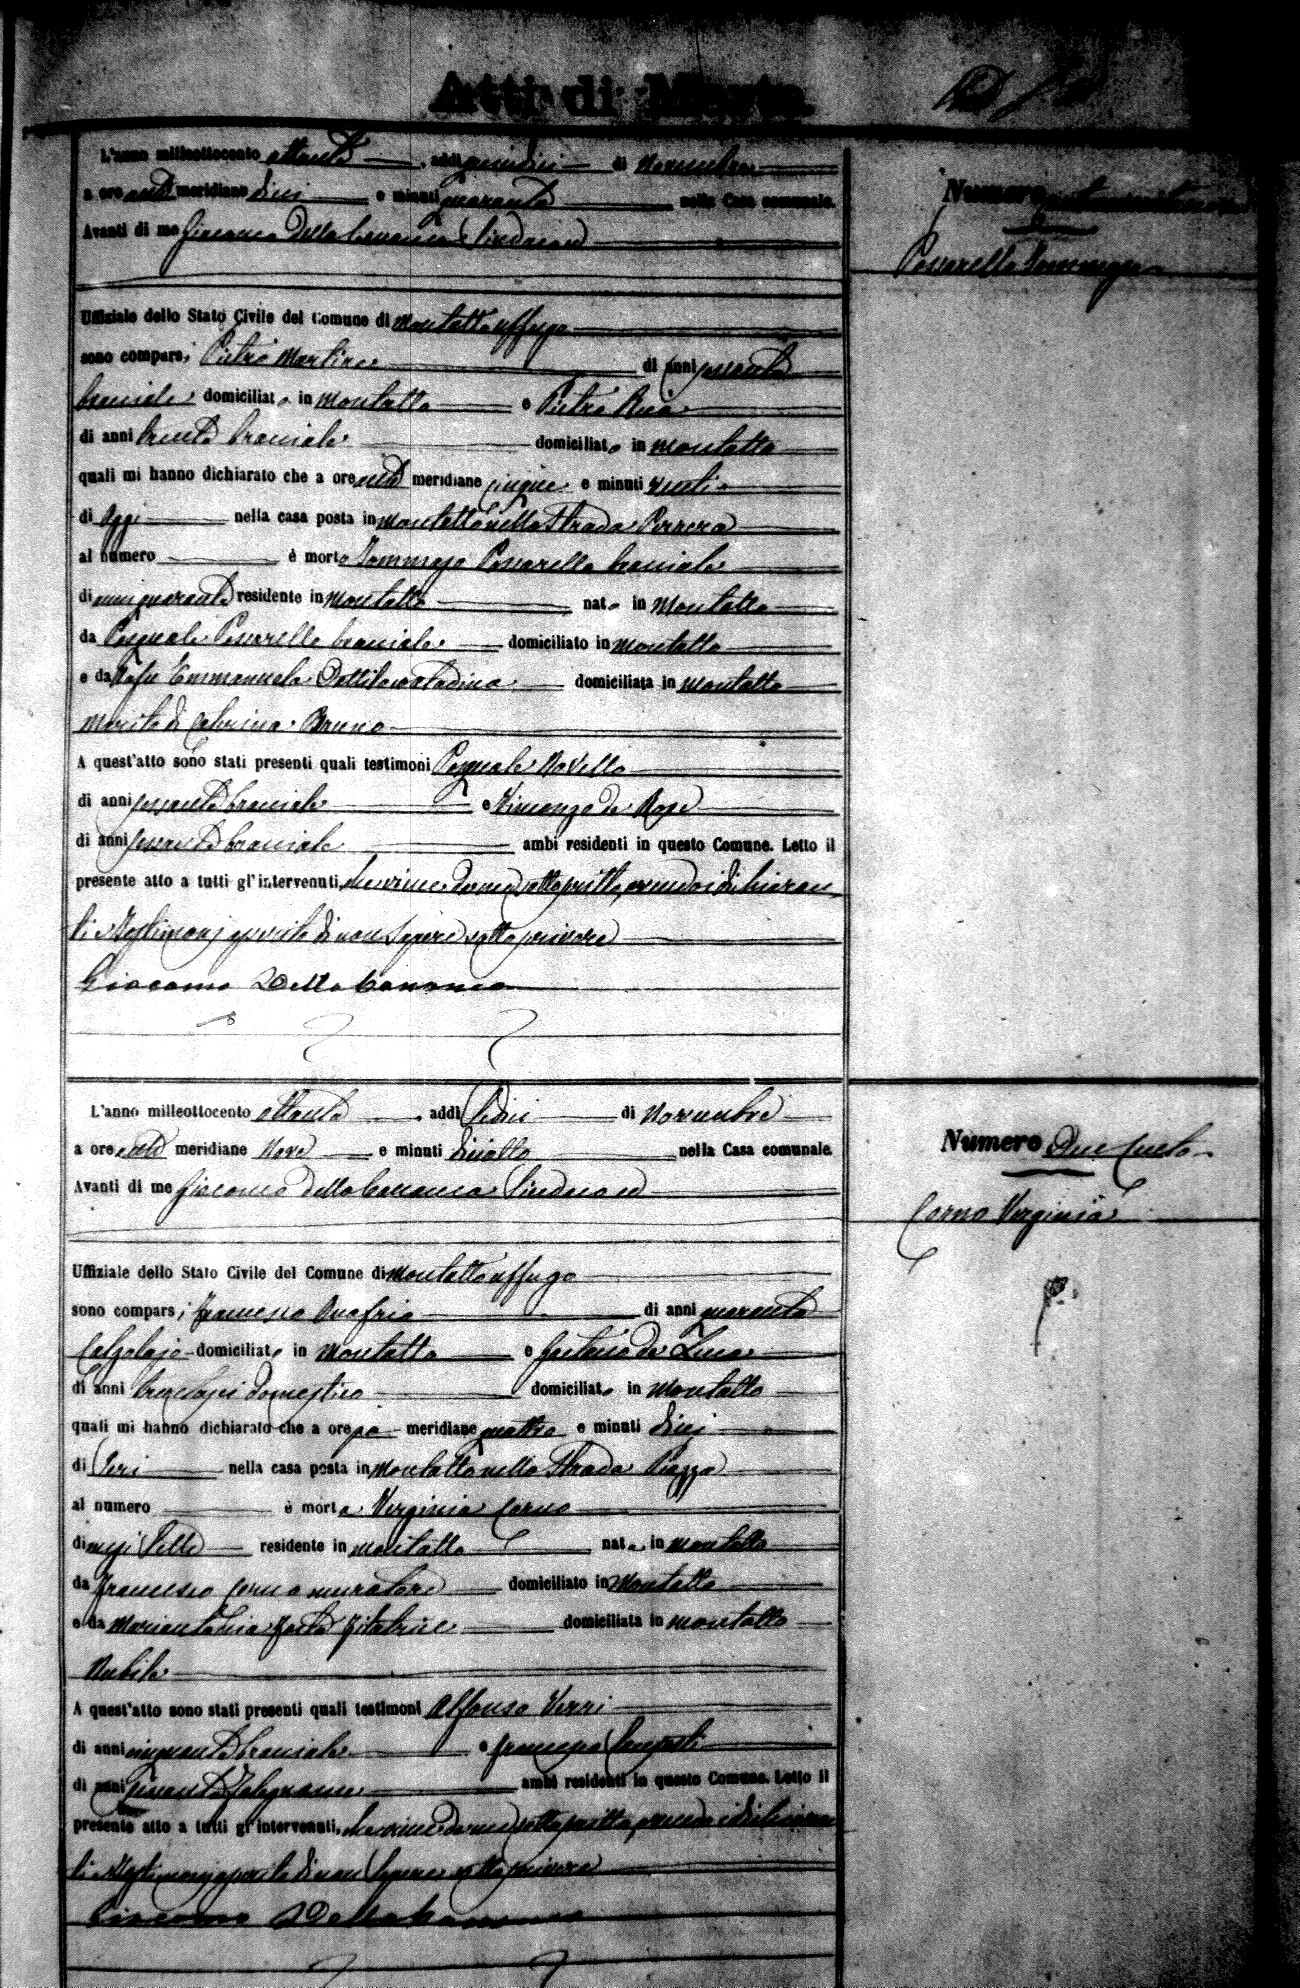 Atti di Morte
L'anno milleottocento ottanta, addì quindici di Novembre
a ore anti meridiane dieci e minuti quaranta nella Casa comunale.
Avanti di me Giacomo Della Cananea Sindaco ed
Uffiziale dello Stato Civile del Comune di Montalto Uffugo
sono comparsi Pietro Martino di anni sessanta
bracciale domiciliato in Montalto e Pietro
di anni trenta bracciale domiciliato in Montalto
quali mi hanno dichiarato che a ore anti meridiane cinque e minuti venti
di Oggi nella casa posta in Montalto nella Strada
al numero è morto Tommaso Pescarella bracciale
di anni quaranta residente in Montalto nato in Montalto
da Pasquale Pescarella bracciale domiciliato in Montalto
e da fu Emmanuela contadina domiciliata in Montalto
Marito di Bruno
A quest'atto sono stati presenti quali testimoni Pasquale Novello
di anni sessanta bracciale e Vincenzo de Rose
di anni sessanta bracciale ambi residenti in questo Comune. Letto il
presente atto a tutti gl'intervenuti, che viene da me sottoscritto, avendo i dichiaran
ti e testimonj asserito di non sapere sottoscrivere
Giacomo Della Cananea
Numero
Pescarella Tommaso
L'anno milleottocento ottanta, addì Sedici di Novembre
a ore anti meridiane Nove e minuti dieciotto nella Casa comunale.
Avanti di me Giacomo della Cananea Sindaco ed
Uffiziale dello Stato Civile del Comune di Montalto Uffugo
sono comparsi Francesco Onofrio di anni quaranta
Calzolaio domiciliato in Montalto e Gaetano de Luca
di anni trentasei domestico domiciliato in Montalto
quali mi hanno dichiarato che a ore po meridiane quattro e minuti dieci
di Ieri nella casa posta in Montalto nella Strada Piazza
al numero è morta Virginia Corno
di mesi Sette residente in Montalto nata in Montalto
da Francesco Corno muratore domiciliato in Montalto
e da Mariantonia filatrice domiciliata in Montalto
Nubile
A quest'atto sono stati presenti quali testimoni Alfonso Verri
di anni cinquanta bracciale e Francesco
di anni sessanta falegname ambi residenti in questo Comune. Letto il
presente atto a tutti gl'intervenuti, che viene da me sottoscritto, avendo i dichiaran
ti e testimonj asserito di non Sapere sottoscrivere
Giacomo Della Cananea
Numero Duecento
Corno Virginia